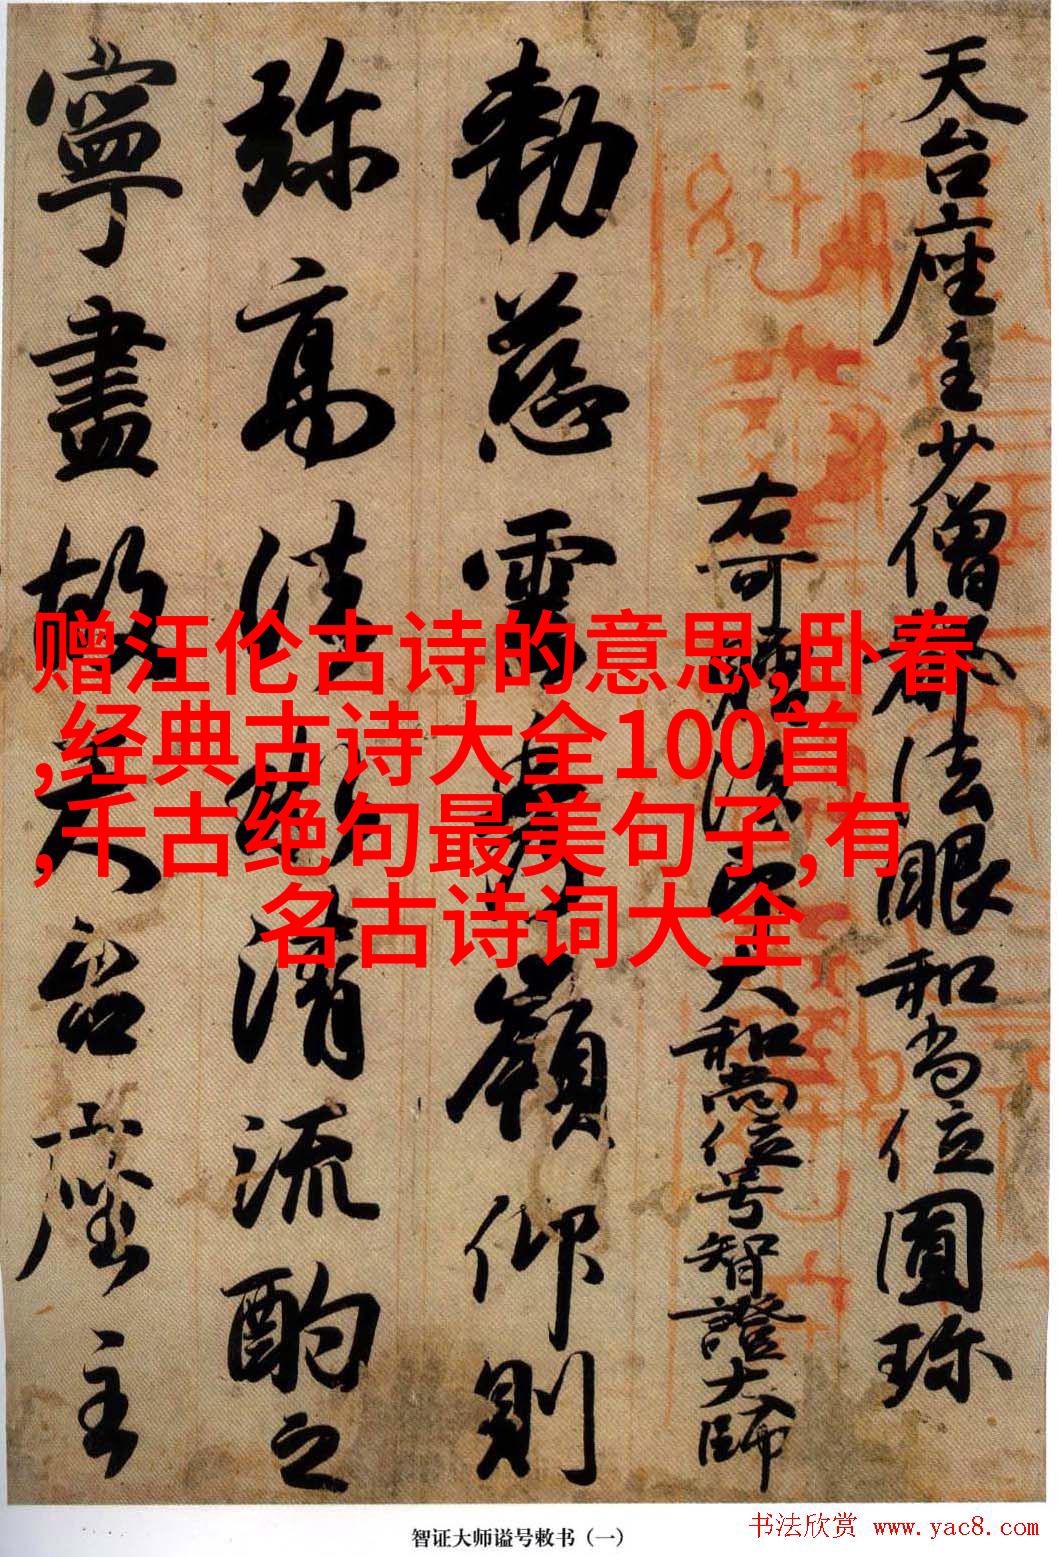 天台座主少僧都法眼和尚位圓珍
右可贈法印大和尚位号智證大師
勅慈雲嶺仰則
弥高清流酌之
寧盡故天台座主
赠汪伦古诗的意思,卧春
,经典古诗大全100首
,千古绝句最美句子,有
名古诗词大全
智证大师谥号敕书（一）
书法欣赏 www.yac8.com